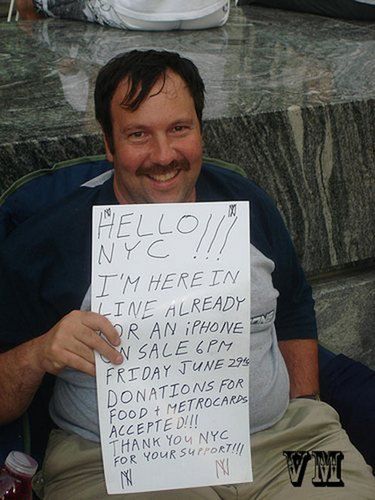 HELLO
NYC !!!
I'M HERE IN
LINE ALREADY
FOR AN iPHONE
ON SALE 6PM
FRIDAY JUNE 29th
DONATIONS FOR
FOOD + METROCARDS
ACCEPTED!!!
THANK YOU NYC
FOR YOUR SUPPORT!!!
NY NY
VM